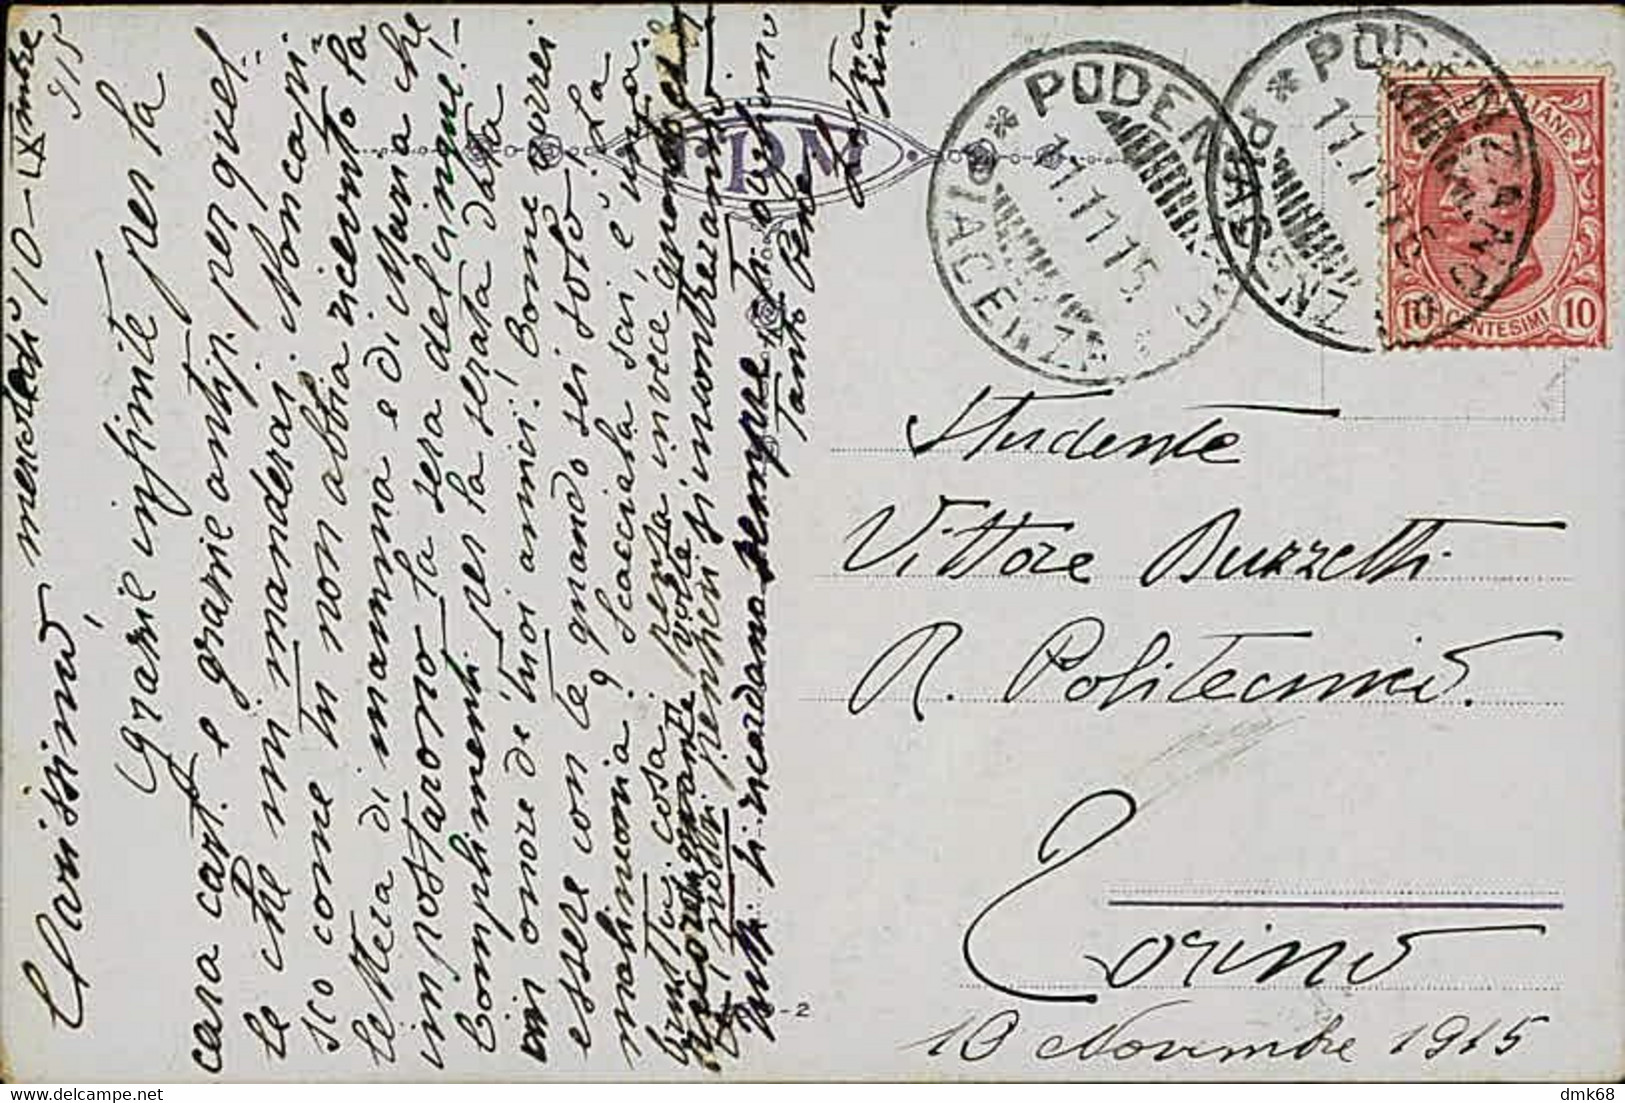 mercoledì 10 - IXmbre
915
Carissimo,
Grazie infinite per la
cara cart. e grazie antip. per quel-
le che mi manderai. Non capi-
sco come tu non abbia ricevuto la
lettera di mamma e di Maria che
impostarono la sera del cinque!
Complimenti per la serata data
in onore de' tuoi amici! Come vorrei
essere con te quando sei solo! La
malinconia? Scacciala sai, è una
brutta cosa. invece quando
i nostri pensieri si incontreranno.
Tutti ti ricordano sempre
Tanto bene
tua
Rina
TPM
- 2
* PODENZANO *
PIACENZA
11.11.15
* PODENZANO *
PIACENZA
11.11.15
POSTE ITALIANE
10 CENTESIMI 10
Studente
Vittore Buzzetti
R. Politecnico.
Torino
10 Novembre 1915
dmk68